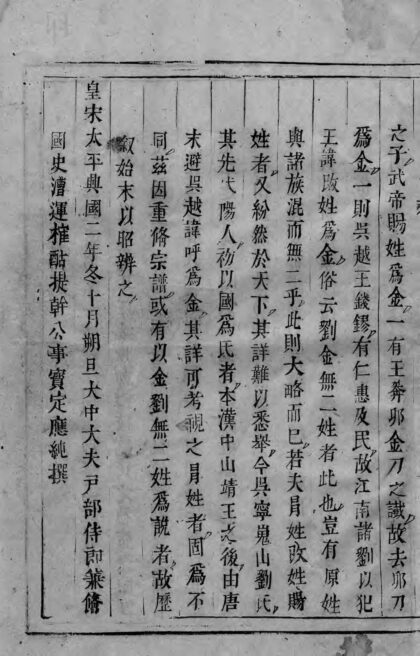 之子武帝賜姓爲金一有王莾卯金刀之讖故去卯刀
爲金一則吳越王錢鏐有仁惠及民故江南諸劉以犯
王諱改姓爲金俗云劉金無二姓者此也豈有原姓
與諸族混而無二乎此則大略而已若夫冐姓改姓賜
姓者又紛然於天下其詳難以悉舉今吳寧嵬山劉氏
其先弋陽人初以國爲氏者本漢中山靖王之後由唐
末避吳越諱呼爲金其詳可考視之冐姓者固爲不
同茲因重脩宗譜或有以金劉無二姓爲說者故歷
叙始末以昭辨之
皇宋太平興國二年冬十月朔旦大中大夫戸部侍郎兼脩
國史漕運榷酤提幹公事寳定應純撰